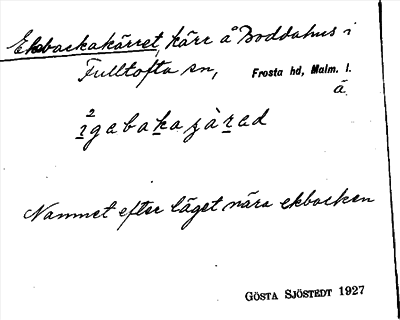 Ekbackakärret, kärr å Boddahus i
Fulltofta sn, Frosta hd, Malm. l.
ä
Namnet efter läget nära ekbacken
GÖSTA SJÖSTEDT 1927